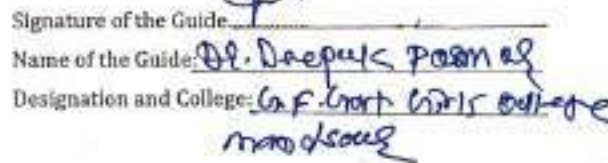 Signature of the Guide
Name of the Guide: Dr. Deepak
Designation and College: Girls College
Mandsaur